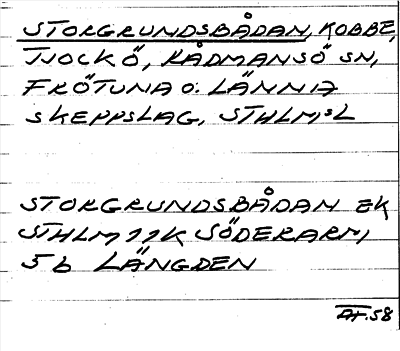 STORGRUNDSBÅDAN, KOBBE,
TJOCKÖ, RÅDMANSÖ SN,
FRÖTUNA O. LÄNNA
SKEPPSLAG, STHLMSL
STORGRUNDSBÅDAN EK
STHLM 11K SÖDERARM,
5b LÄNGDEN
AF.58